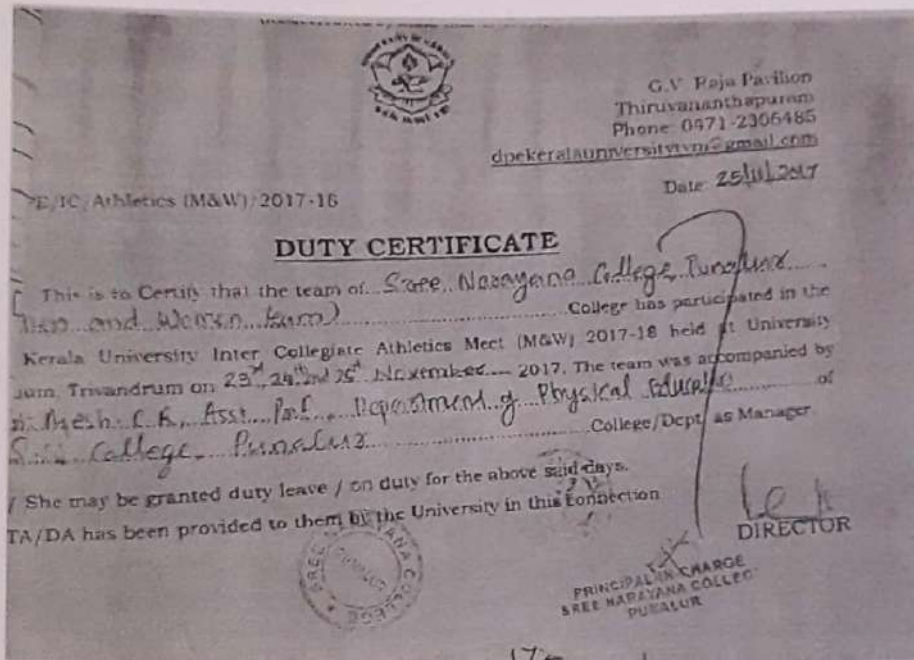 G.V Raja Pavilion
Thiruvananthapuram
Phone 0471-2306485
dpekeralauniversitytvm@gmail.com
Date: 25/11/2017
PE/IC/Athletics (M&W)/2017-18
DUTY CERTIFICATE
This is to Certify that the team of Sree Narayana College, Punalur
and Women team) College has participated in the
Kerala University Inter Collegiate Athletics Meet (M&W) 2017-18 held at University
ium, Trivandrum on 23rd, 24th and 25th November 2017. The team was accompanied by
C.R, Asst. Prof., Department of Physical Educatio of
College, Punalur College/Dept, as Manager
/ She may be granted duty leave / on duty for the above said days.
TA/DA has been provided to them by the University in this connection
DIRECTOR
SREE NARAYANA COLLEGE
PUNALUR
PRINCIPAL IN CHARGE
SREE NARAYANA COLLEG
PUNALUR